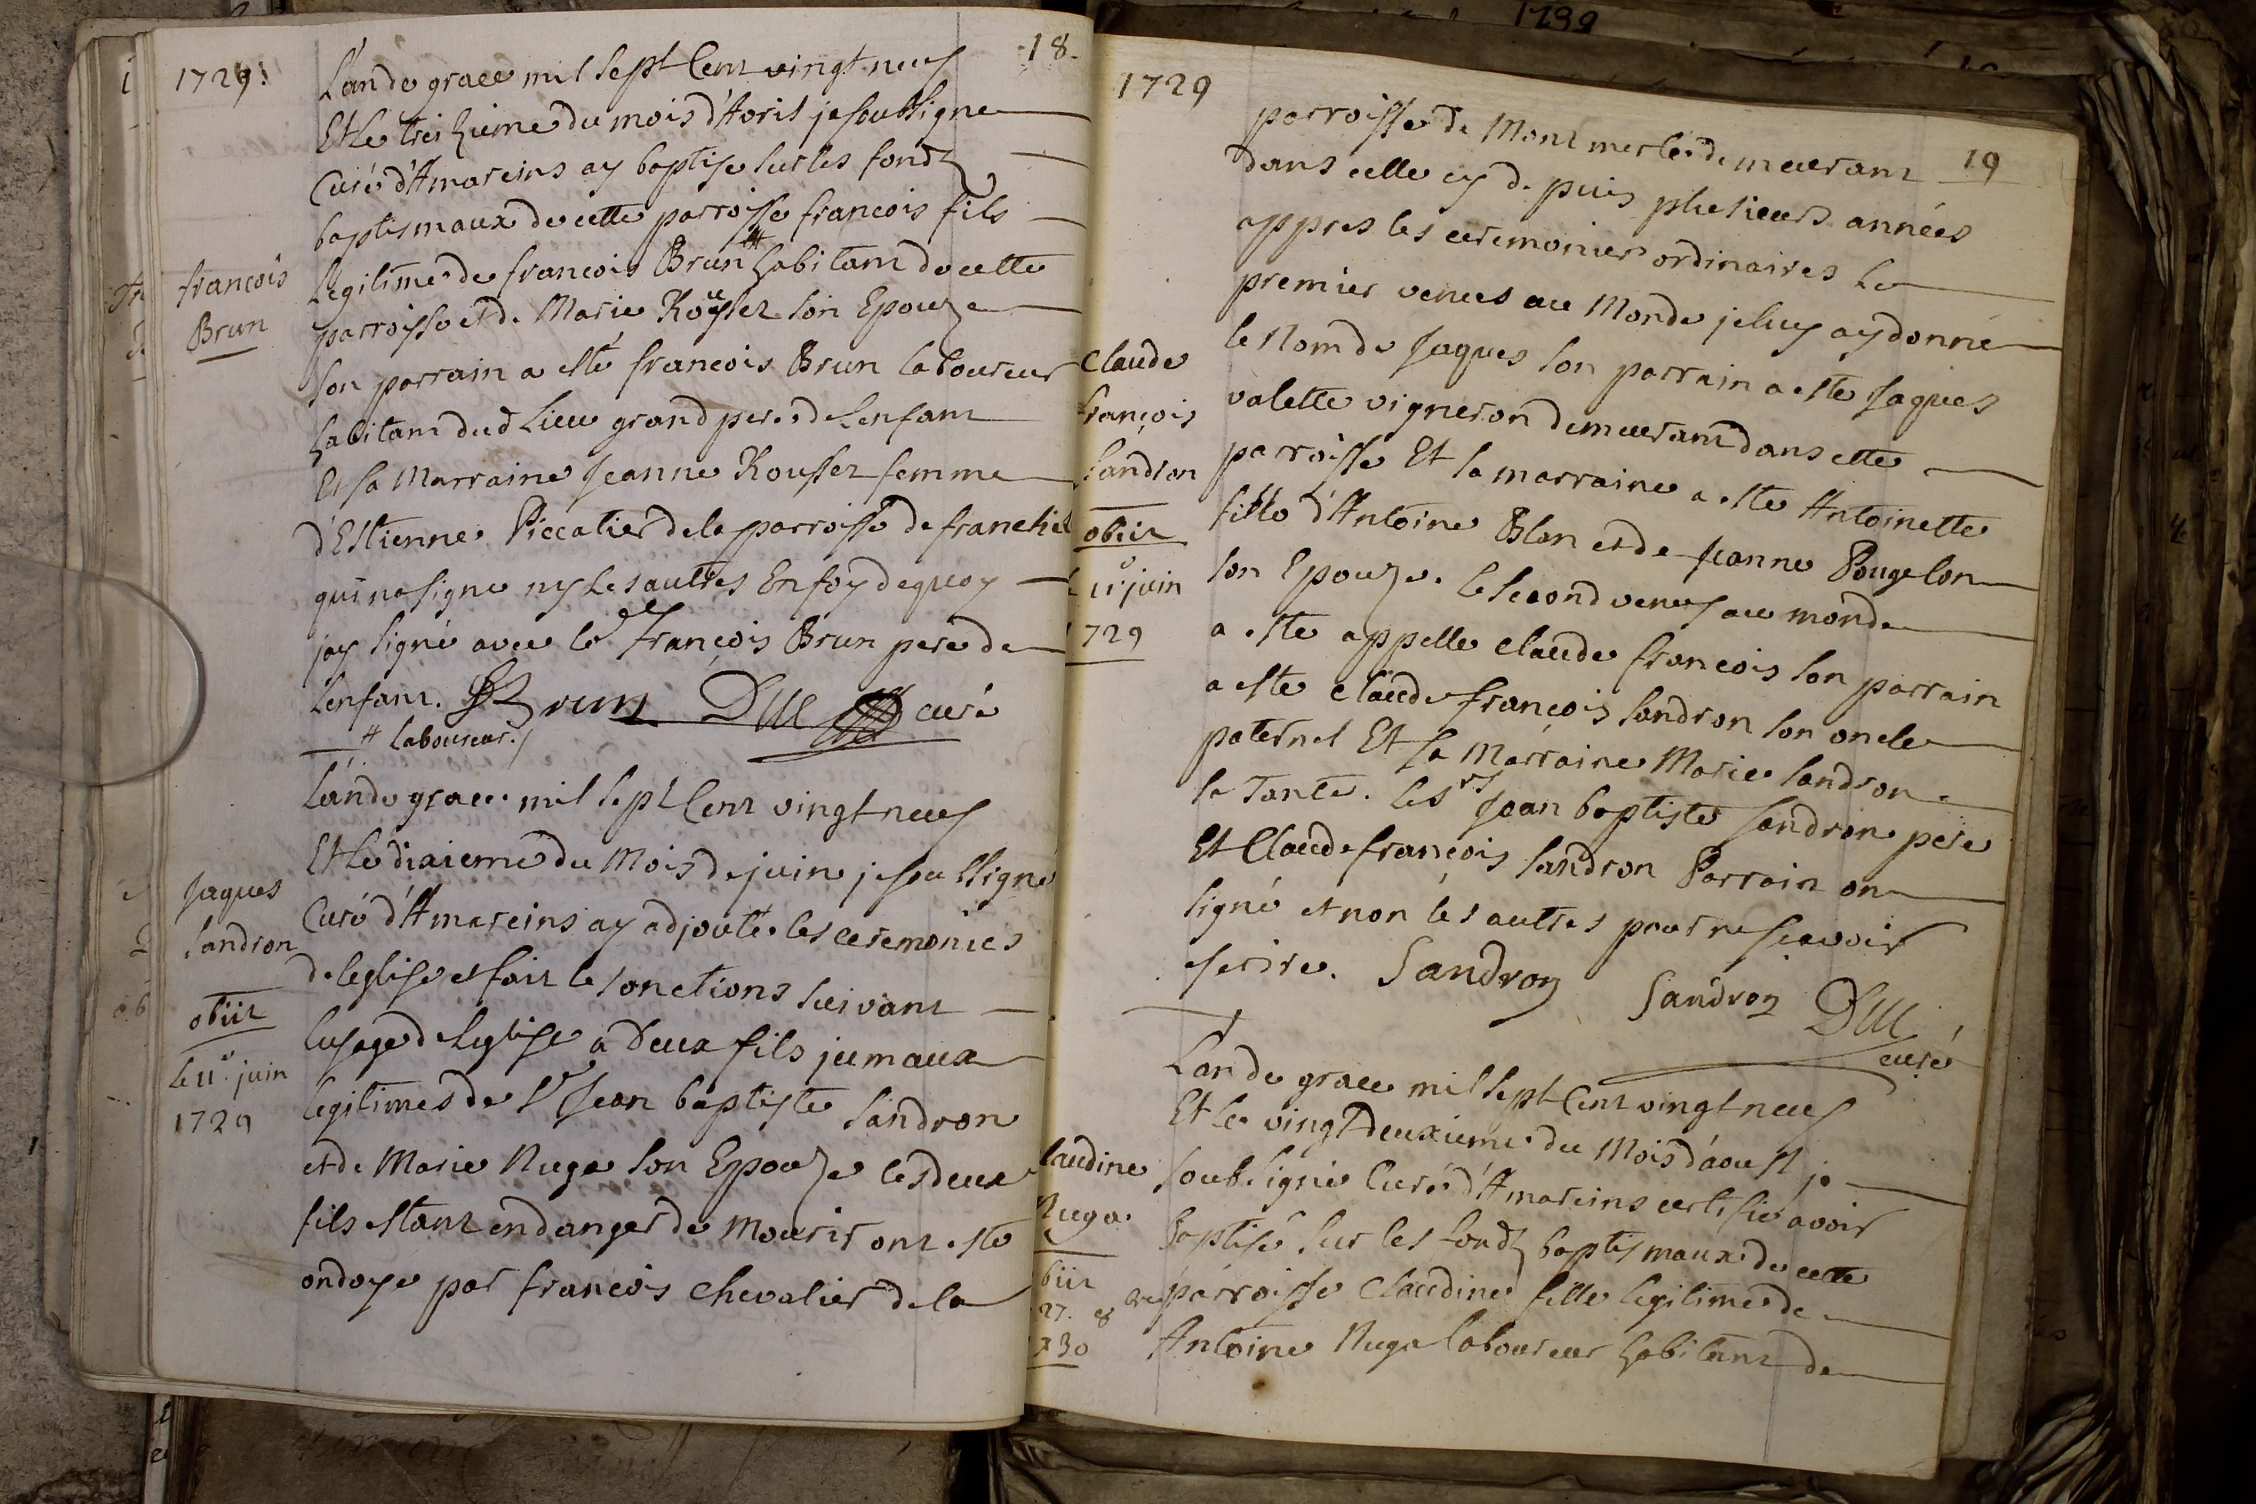 1729.
18.
L'an de grace mil sept Cent vingt neuf
Et le treiziéme du mois d'Avril je soubsigne
Curé d'Amareins ay baptisé sur les fondz
baptismaux de cette parroisse francois fils
Legitime de francois Brun # habitant de cette
parroisse et de Marie Rousset son Epouze
son parrain a esté francois Brun laboureur
habitant dud Lieu grand pere de Lenfant
Et sa Marraine Jeanne Rousset femme
d'Estienne Piccatier de la parroisse de
qui na signe ny Les autres En foy de quoy
jay signé avec le d françois Brun pere de
Lenfant. Brun Duc curé
# laboureur.
françois
Brun
L'an de grace mil sept Cent vingt neuf
Et le dixieme du Mois de juin je soubsigné
Curé d'Amareins ay adjouté les ceremonies
de leglise et fait le sonctions suivant
lusage de Leglise a deux fils jumaux
legitimes de Sr Jean baptiste Sandron
et de Marie Nuga son Epouze les deux
fils estant en danger de Mourir ont esté
ondoye par francois Chevalier de la
Jaques
Sandron
obiit
le 11e juin
1729
1729
19
parroisse de Montmerle demeurant
dans celle cy de puis plusieurs années
appres les ceremonies ordinaires Le
premier venus au Monde je luy ay donné
le Nom de Jaques son parrain a esté Jaques
valette vigneron demeurant dans cette
parroisse Et la marraine a esté Antoinette
fille d'Antoine Blan et de Jeanne Pougelon
son Epouze. le second venus au monde
a esté appelle Claude francois son parrain
a esté Claude françois Sandron son oncle
paternel Et la Marraine Marie Sandron
sa Tante. les Srs Jean baptiste Sandron pere
Et Claude françois Sandron Parrain on
signé et non les autres pour ne sçavoir
escrire. Sandron Sandron Duc
curé
Claude
françois
Sandron
obiit
11e juin
729
L'an de grace mil sept Cent vingt neuf
Et le vingt deuxieme du Mois d'aoust je
soubsigné Curé d'Amareins certifie avoir
baptisé sur les fondz baptismaux de cette
parroisse Claudine fille legitime de
Antoine Nuga laboureur habitant de
laudine
Nuga
biit
27. 8bre
730
1739